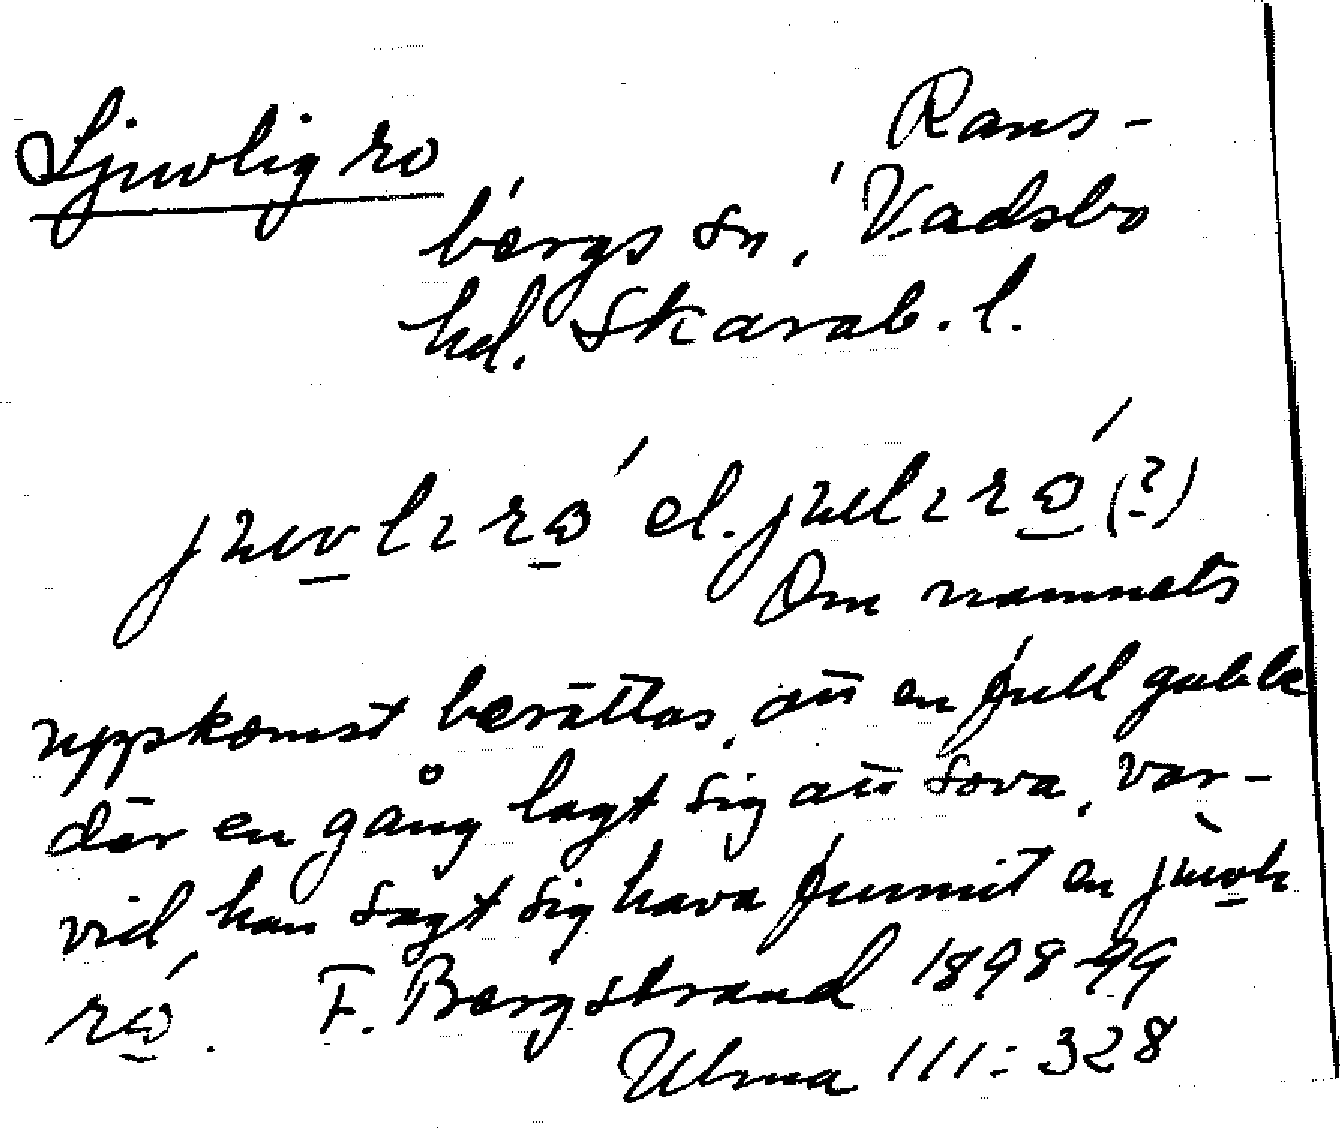 Ljuvlig ro
Rans-
bergs sn, Vadsbo
hd. Skarab. l.
el. (?)
Om namnets
uppkomst berättas, att en full gubbe
där en gång lagt sig att sova, var-
vid han sagt sig hava funnit en
F. Bergstrand 1898-99
Ulma 111:328